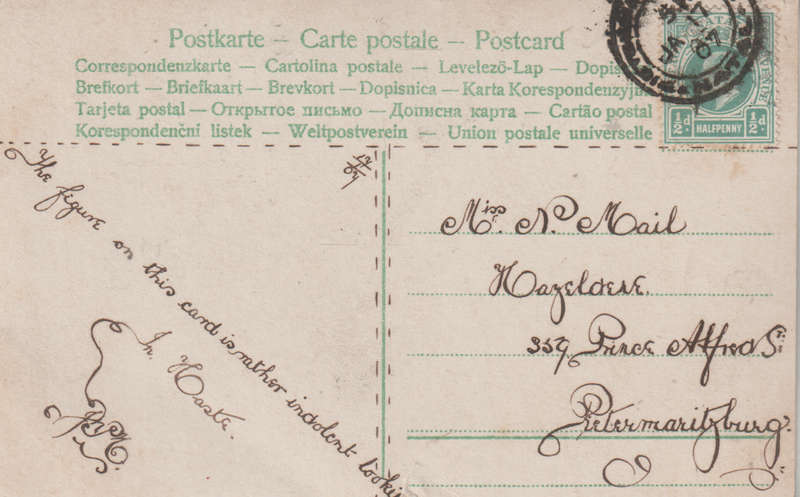 Postkarte – Carte postale – Postcard
Correspondenzkarte – Cartolina postale – Levelező-Lap – Dopis
Brefkort – Briefkaart – Brevkort – Dopisnica – Karta Korespondenzyjn
Tarjeta postal – Открытое письмо – Дописна карта – Cartão postal
Korespondenční listek – Weltpostverein – Union postale universelle
JA 17
07
NATAL
REVENUE
½d. HALFPENNY ½d
17/07
The figure on this card is rather indolent looki
In Haste.
Miss. N. Mail
Hazeldene.
359 Prince Alfred St.
Pietermaritzburg.